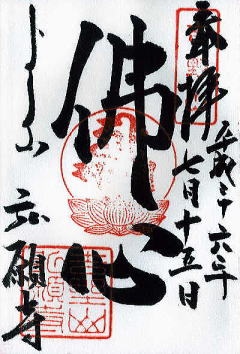 奉拝
平成二十六年
七月十五日
佛心
弘願寺